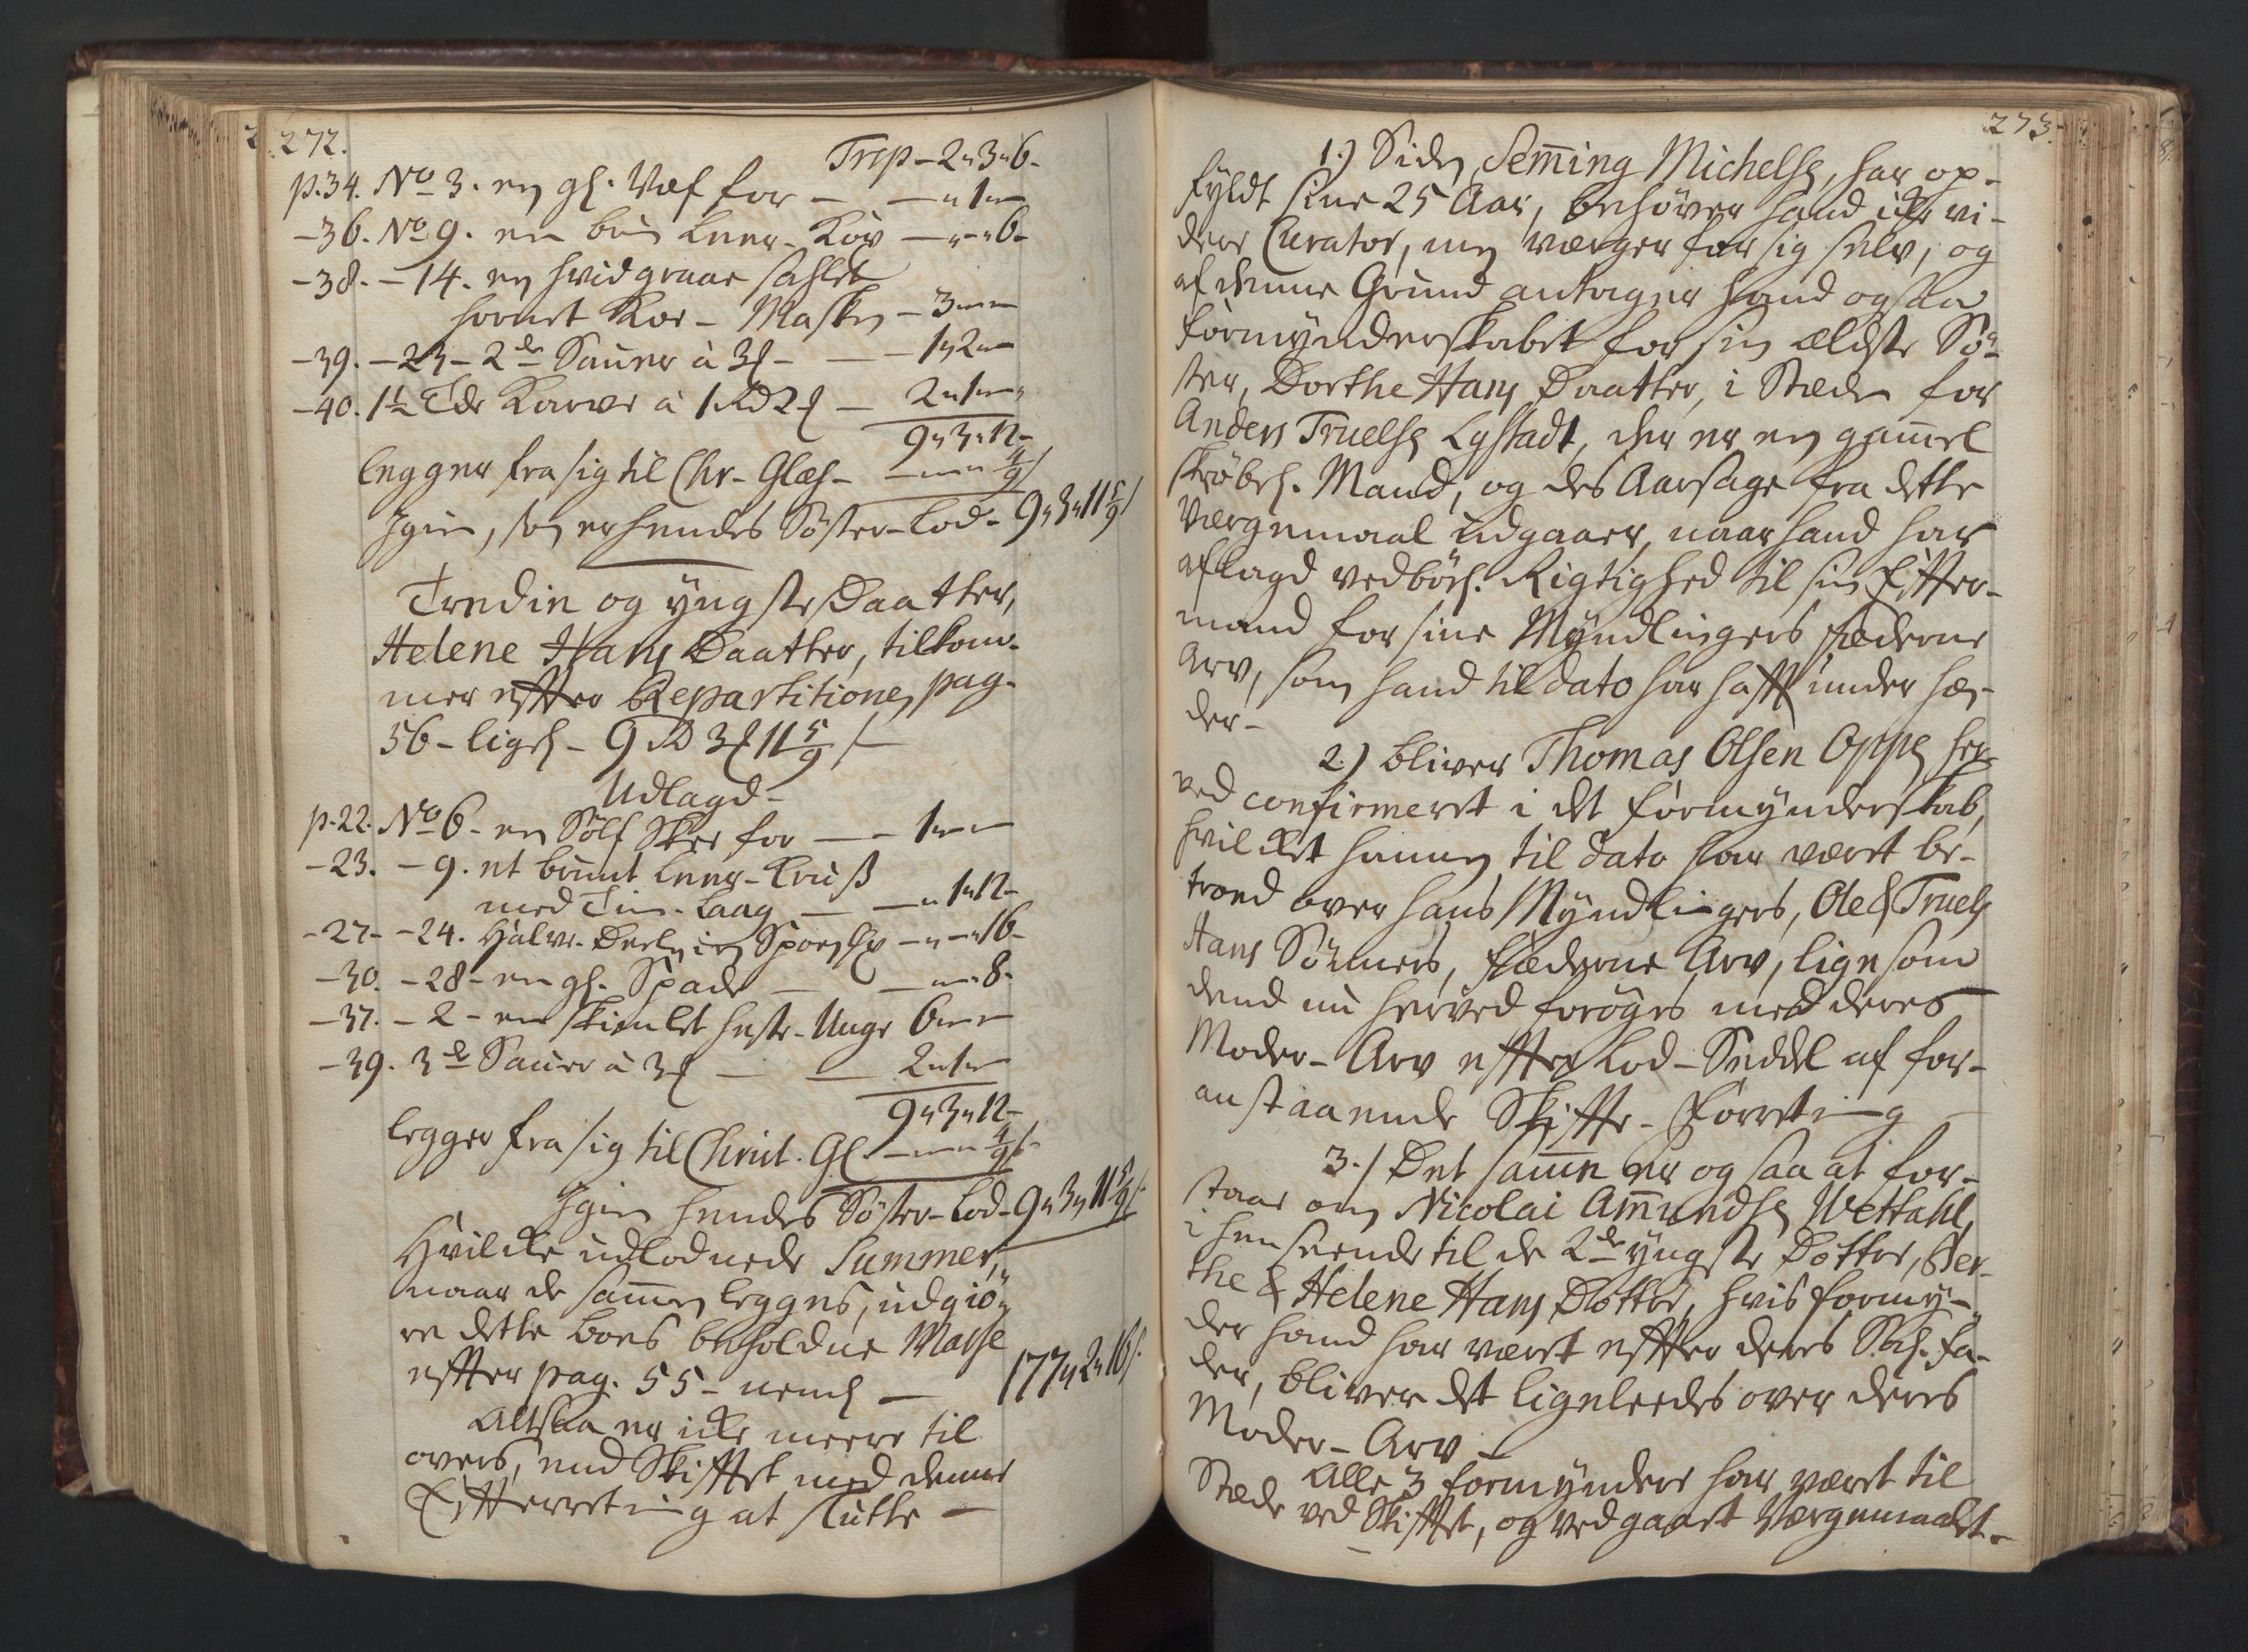 272.
Trsp - 2 " 3 " 6 -
p. 34. No 3. en gl. Væf for — — " 1 " —
- 36. No 9. en bue Leer - Kov — " — " 6 -
- 38. - 14. en hvidgraae
hornet Koe - — 3 " — " —
- 39. - 23 - 2de Sauer à 3 — — 1 " 2 " —
- 40. 1½ Tde Korn à 1 Rd 2 — 2 " 1 " —
9 " 3 " 12 -
legger fra sig til Chr - Glæs - — " — " 4/9 /
Igien, som er hendes Söster-Lod - 9 " 3 " 11 5/9 /
Tredie og yngste Daatter,
Helene Hans Daatter, tilkom-
mer efter Repartitionen pag.
56 - ligel - 9 Rd 3 11 5/9 /
Udlagd -
p. 22. No 6 - en Sölf Skee for — — 1 " — " —
- 23. - 9. et bruunt Leer - Kruus
med Tin - Laag — — " 1 " 12 -
- 27 - - 24. Halve - Deelen i en — " — " 16 -
- 30. - 28 - en gl. Spade — — " — " 8 -
- 37. - 2 - en skimlet Heste - Unge 6 " — " —
- 39. 3de Sauer à 3 — — 2 " 1 " —
9 " 3 " 12 -
legger fra sig til Christ. Gl. — " — " 4/9 /
Igien hendes Söster-Lod - 9 " 3 " 11 5/9 /
Hvilcke udlodnede Summer,
naar de sammen legges, udgiö-
re dette Boes beholdne Masse
efter pag. 55 - neml — 177 " 2 " 16 /
Altsaa er icke meere til
overs, end Skiftet med denne
Efterretning at slutte —
273.
1.) Siden Seming Michelsen, har op-
fyldt sine 25 Aar, behöver hand icke vi-
dere Curator, men værger for sig selv, og
af denne Grund antager hand ogsaa
Formynderskabet for sin ældste Sö-
ster, Dorthe Hans Daatter, i Stæden for
Anders Truelsen Lystadt, der er en gammel
skröbel. Mand, og des Aarsage fra dette
Værgemaal udgaaer, naar hand har
aflagd vedbörl. Rigtighed til sin Efter-
mand for sine Myndlingers fæderne
Arv, som hand til dato har haft under Hæn-
der -
2.) bliver Thomas Olsen Oppen her-
ved confirmeret i det Formynderskab,
hvilcket hannem til dato har været be-
troed over hans Myndlingers, Ole & Truels
Hans Sönners, fæderne Arv, ligesom
dend nu herved foröges med deres
Moder - Arv efter Lod - Seddel af for-
anstaaende Skifte - Forretning
3.) Det samme er ogsaa at for-
staae om Nicolai Amundsen Wettahl,
i henseende til de 2de yngste Döttre, Ber-
the & Helene Hans Döttre, hvis Formyn-
der hand har været efter deres Sal. Fa-
der, bliver det ligeleedes over deres
Moder - Arv -
Alle 3 Formyndere har været til
Stæde ved Skiftet, og vedgaaet Værgemaalet.